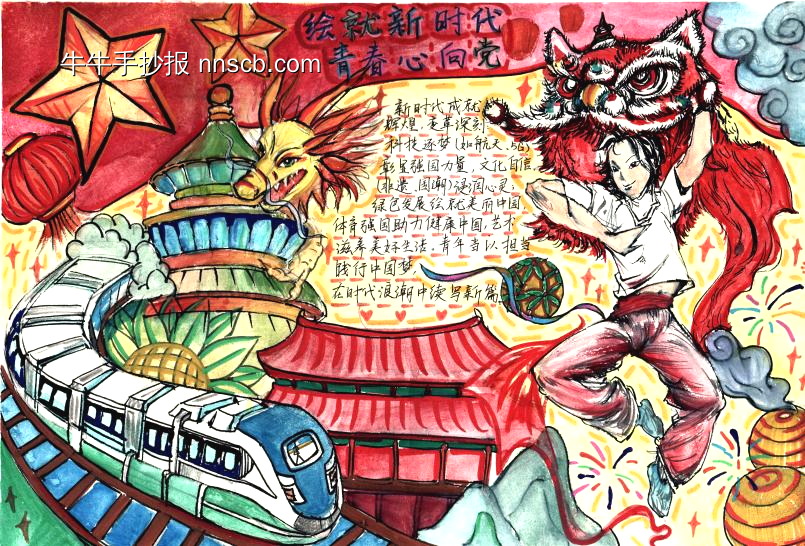 绘就新时代
青春心向党
牛牛手抄报 nnscb.com
新时代成就
辉煌,变革深刻
科技逐梦(如航天、5G)
彰显强国力量,文化自信
(非遗、国潮)浸润心灵;
绿色发展绘就美丽中国,
体育强国助力健康中国,艺术
滋养美好生活。青年当以担当
践行中国梦,
在时代浪潮中续写新篇